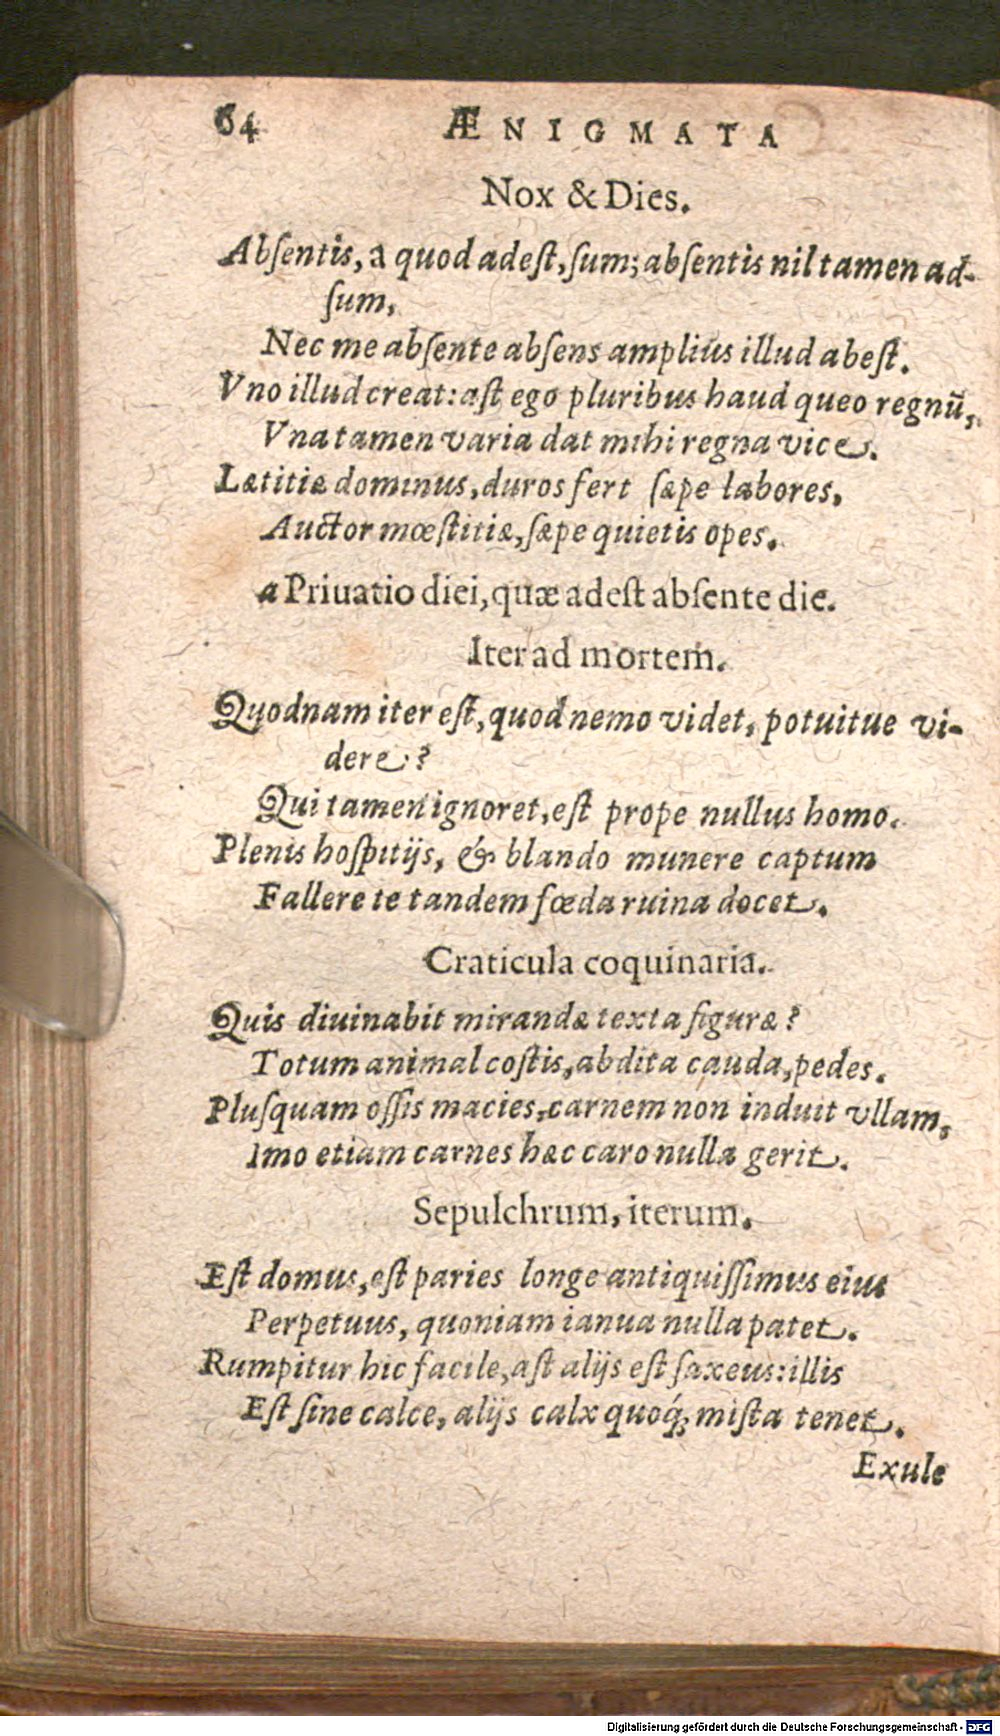 64 ÆNIGMATA
Nox & Dies.
Abſentis, a quod adeſt, ſum; abſentis nil tamen ad-
ſum,
Nec me abſente abſens amplius illud abeſt.
Vno illud creat: aſt ego pluribus haud queo regnū,
Vna tamen varia dat mihi regna vice.
Lætitiæ dominus, duros fert ſæpe labores,
Auctor mœſtitiæ, ſæpe quietis opes.
a Priuatio diei, quæ adeſt abſente die.
Iter ad mortem.
Quodnam iter eſt, quod nemo videt, potuitue vi-
dere?
Qui tamen ignoret, eſt prope nullus homo.
Plenis hoſpitijs, & blando munere captum
Fallere te tandem fœda ruina docet.
Craticula coquinaria.
Quis diuinabit mirandæ texta figuræ?
Totum animal coſtis, abdita cauda, pedes.
Pluſquam oſſis macies, carnem non induit vllam,
Imo etiam carnes hæc caro nulla gerit.
Sepulchrum, iterum.
Eſt domus, eſt paries longe antiquiſſimus eius
Perpetuus, quoniam ianua nulla patet.
Rumpitur hic facile, aſt alijs eſt ſaxeus: illis
Eſt ſine calce, alijs calx quoq́; miſta tenet.
Exule
Digitalisierung gefördert durch die Deutsche Forschungsgemeinschaft - DFG